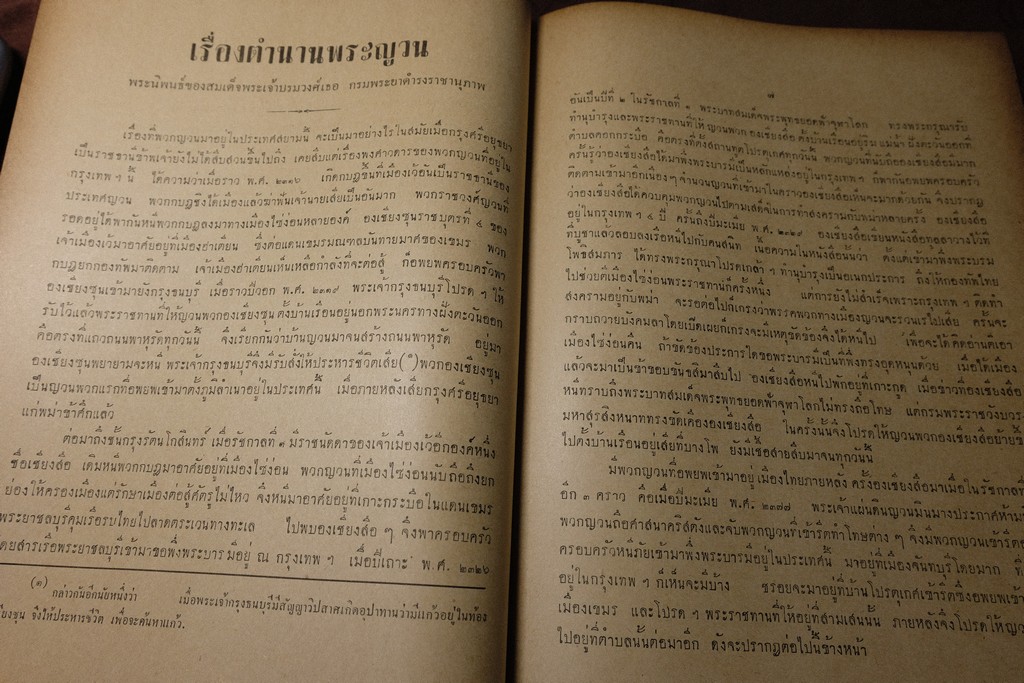 เรื่องตำนานพระญวน
พระนิพนธ์ของสมเด็จพระเจ้าบรมวงศ์เธอ กรมพระยาดำรงราชานุภาพ
เรื่องที่พวกญวนมาอยู่ในประเทศสยามนี้ จะเป็นมาอย่างไรในสมัยเมื่อกรุงศรีอยุธยา
เป็นราชธานีข้าพเจ้ายังไม่ได้สืบสวนขึ้นไปถึง เคยสืบแต่เรื่องพงศาวดารของพวกญวนที่อยู่ใน
กรุงเทพ ฯ นี้ ได้ความว่าเมื่อราว พ.ศ. ๒๓๑๖ เกิดกบฏขึ้นที่เมืองเว้อันเป็นราชธานีของ
ประเทศญวน พวกกบฏชิงได้เมืองแล้วฆ่าพันเจ้านายเสียเป็นอันมาก พวกราชวงศ์ญวนที่
รอดอยู่ได้พากันหนีพวกกบฏลงมาทางเมืองไซ่ง่อนหลายองค์ องเชียงชุนราชบุตรที่ ๔ ของ
เจ้าเมืองเว้มาอาศัยอยู่ที่เมืองฮาเตียน ซึ่งต่อแดนเขมรมณฑลบันทายมาศของเขมร พวก
กบฏยกกองทัพมาติดตาม เจ้าเมืองฮาเตียนเห็นเหลือกำลังที่จะต่อสู้ ก็อพยพครอบครัวพา
องเชียงชุนเข้ามายังกรุงธนบุรี เมื่อราวปีวอก พ.ศ. ๒๓๑๙ พระเจ้ากรุงธนบุรีโปรด ฯ ให้
รับไว้แล้วพระราชทานที่ให้ญวนพวกองเชียงชุนตั้งบ้านเรือนอยู่นอกพระนครทางฝั่งตะวันออก
คือตรงที่แถวถนนพาหุรัดทุกวันนี้ จึงเรียกกันว่าบ้านญวนมาจนสร้างถนนพาหุรัด อยู่มา
องเชียงชุนพยายามจะหนี พระเจ้ากรุงธนบุรีจึงมีรับสั่งให้ประหารชีวิตเสีย(๑)พวกองเชียงชุน
เป็นญวนพวกแรกที่อพยพเข้ามาตั้งภูมิลำเนาอยู่ในประเทศนี้ เมื่อภายหลังเสียกรุงศรีอยุธยา
แก่พม่าข้าศึกแล้ว
ต่อมาถึงชั้นกรุงรัตนโกสินทร์ เมื่อรัชกาลที่ ๑ มีราชนัดดาของเจ้าเมืองเว้อีกองค์หนึ่ง
ชื่อเชียงสือ เดิมหนีพวกกบฏมาอาศัยอยู่ที่เมืองไซ่ง่อน พวกญวนที่เมืองไซ่ง่อนนับถือถึงยก
ย่องให้ครองเมืองแต่รักษาเมืองต่อสู้ศัตรูไม่ไหว จึงหนีมาอาศัยอยู่ที่เกาะกระบือในแดนเขมร
พระยาชลบุรีคุมเรือรบไทยไปลาดตระเวนทางทะเล ไปพบองเชียงสือ ๆ จึงพาครอบครัว
โดยสารเรือพระยาชลบุรีเข้ามาขอพึ่งพระบารมีอยู่ ณ กรุงเทพ ฯ เมื่อปีเถาะ พ.ศ. ๒๓๒๖
(๑) กล่าวกันอีกนัยหนึ่งว่า เมื่อพระเจ้ากรุงธนบุรีมีสัญญาวิปลาศเกิดอุปาทานว่ามีแก้วอยู่ในท้อง
เชียงชุน จึงให้ประหารชีวิต เพื่อจะค้นหาแก้ว.
๓
อันเป็นปีที่ ๒ ในรัชกาลที่ ๑ พระบาทสมเด็จพระพุทธยอดฟ้าจุฬาโลก ทรงพระกรุณารับ
ทำนุบำรุงและพระราชทานที่ให้ญวนพวกองเชียงสือ ตั้งบ้านเรือนอยู่ริมแม่น้ำฝั่งตะวันออกที่
ตำบลคอกกระบือ คือตรงที่ตั้งสถานทูตโปรตุเกศทุกวันนี้ พวกญวนที่นับถือองเชียงสือมีมาก
ครั้นรู้ว่าองเชียงสือได้มาพึ่งพระบารมีเป็นหลักแหล่งอยู่ในกรุงเทพ ฯ ก็พากันอพยพครอบครัว
ติดตามเข้ามาอีกเนือง ๆ จำนวนญวนที่เข้ามาในคราวองเชียงสือเห็นจะมากด้วยกัน จึงปรากฏ
ว่าองเชียงสือได้ควบคุมพวกญวนไปตามเสด็จในการทำสงครามกับพม่าหลายครั้ง องเชียงสือ
อยู่ในกรุงเทพ ฯ ๔ ปี ครั้นถึงปีมะเมีย พ.ศ. ๒๓๒๙ องเชียงสือเขียนหนังสือทูลลาวางไว้ที่
ที่บูชาแล้วลอบลงเรือหนีไปกับคนสนิท เนื้อความในหนังสือนั้นว่า ตั้งแต่เข้ามาพึ่งพระบรม
โพธิสมภาร ได้ทรงพระกรุณาโปรดเกล้า ฯ ทำนุบำรุงเป็นอเนกประการ ถึงให้กองทัพไทย
ไปช่วยตีเมืองไซ่ง่อนพระราชทานก็ครั้งหนึ่ง แต่การยังไม่สำเร็จเพราะกรุงเทพ ฯ ติดทำ
สงครามอยู่กับพม่า จะรอต่อไปก็เกรงว่าพรรคพวกทางเมืองญวนจะรวนเรไปเสีย ครั้นจะ
กราบถวายบังคมลาโดยเปิดเผยก็เกรงจะมีเหตุขัดข้องจึงได้หนีไป เพื่อจะได้คิดอ่านตีเอา
เมืองไซ่ง่อนคืน ถ้าขัดข้องประการใดขอพระบารมีเป็นที่พึ่งทรงอุดหนุนด้วย เมื่อได้เมือง
แล้วจะมาเป็นข้าขอบขัณฑสีมาสืบไป องเชียงสือหนีไปพักอยู่ที่เกาะกูด เมื่อข่าวที่องเชียงสือ
หนีทราบถึงพระบาทสมเด็จพระพุทธยอดฟ้าจุฬาโลกไม่ทรงถือโทษ แต่กรมพระราชวังบวร
มหาสุรสิงหนาททรงขัดเคืององเชียงสือ ในครั้งนั้นจึงโปรดให้ญวนพวกองเชียงสือย้ายขึ้
ไปตั้งบ้านเรือนอยู่เสียที่บางโพ ยังมีเชื้อสายสืบมาจนทุกวันนี้
มีพวกญวนที่อพยพเข้ามาอยู่เมืองไทยภายหลัง ครั้งองเชียงสือมาเมื่อในรัชกาลที่
อีก ๓ คราว คือเมื่อปีมะเมีย พ.ศ. ๒๓๗๗ พระเจ้าแผ่นดินญวนมินมางประกาศห้ามมิ
พวกญวนถือศาสนาคริสตังและจับพวกญวนที่เข้ารีตทำโทษต่าง ๆ จึงมีพวกญวนเข้ารีตอพ
ครอบครัวหนีภัยเข้ามาพึ่งพระบารมีอยู่ในประเทศนี้ มาอยู่ที่เมืองจันทบุรีโดยมาก ที่
อยู่ในกรุงเทพ ฯ ก็เห็นจะมีบ้าง ชรอยจะมาอยู่ที่บ้านโปรตุเกศเข้ารีตซึ่งอพยพเข้า
เมืองเขมร และโปรด ฯ พระราชทานที่ให้อยู่ที่สามเสนนั้น ภายหลังจึงโปรดให้ญว
ไปอยู่ที่ตำบลนั้นต่อมาอีก ดังจะปรากฏต่อไปนี้ข้างหน้า